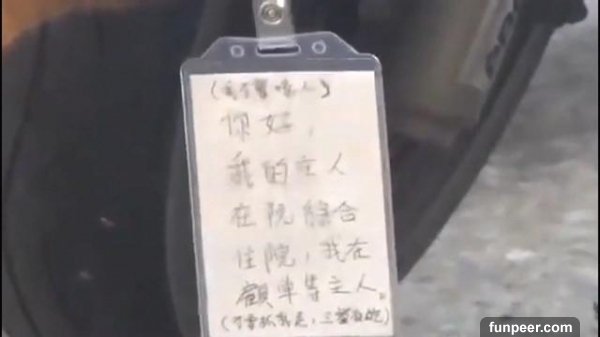 (我不會咬人)
你好，
我的主人
在阮綜合
住院，我在
顧車等主人。
(不要抓我走，三餐有吃)
funpeer.com